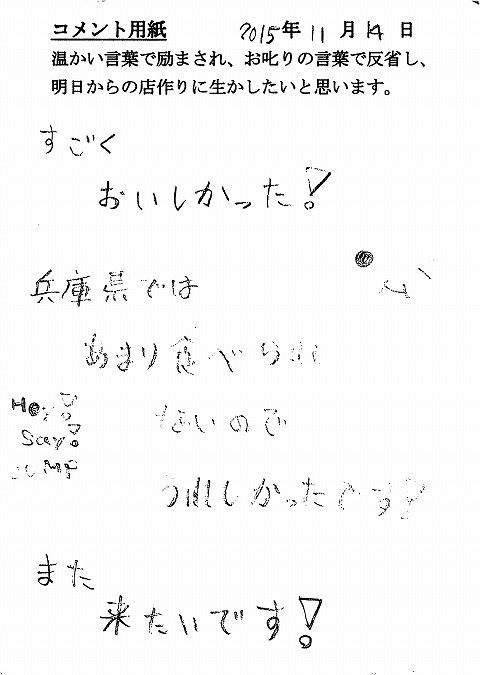 コメント用紙 2015年11月14日
温かい言葉で励まされ、お叱りの言葉で反省し、
明日からの店作りに生かしたいと思います。
すごく
おいしかった!
兵庫県では
あまり食べられ
ないので
うれしかったです!
Hey!
Say!
JUMP
また
来たいです!